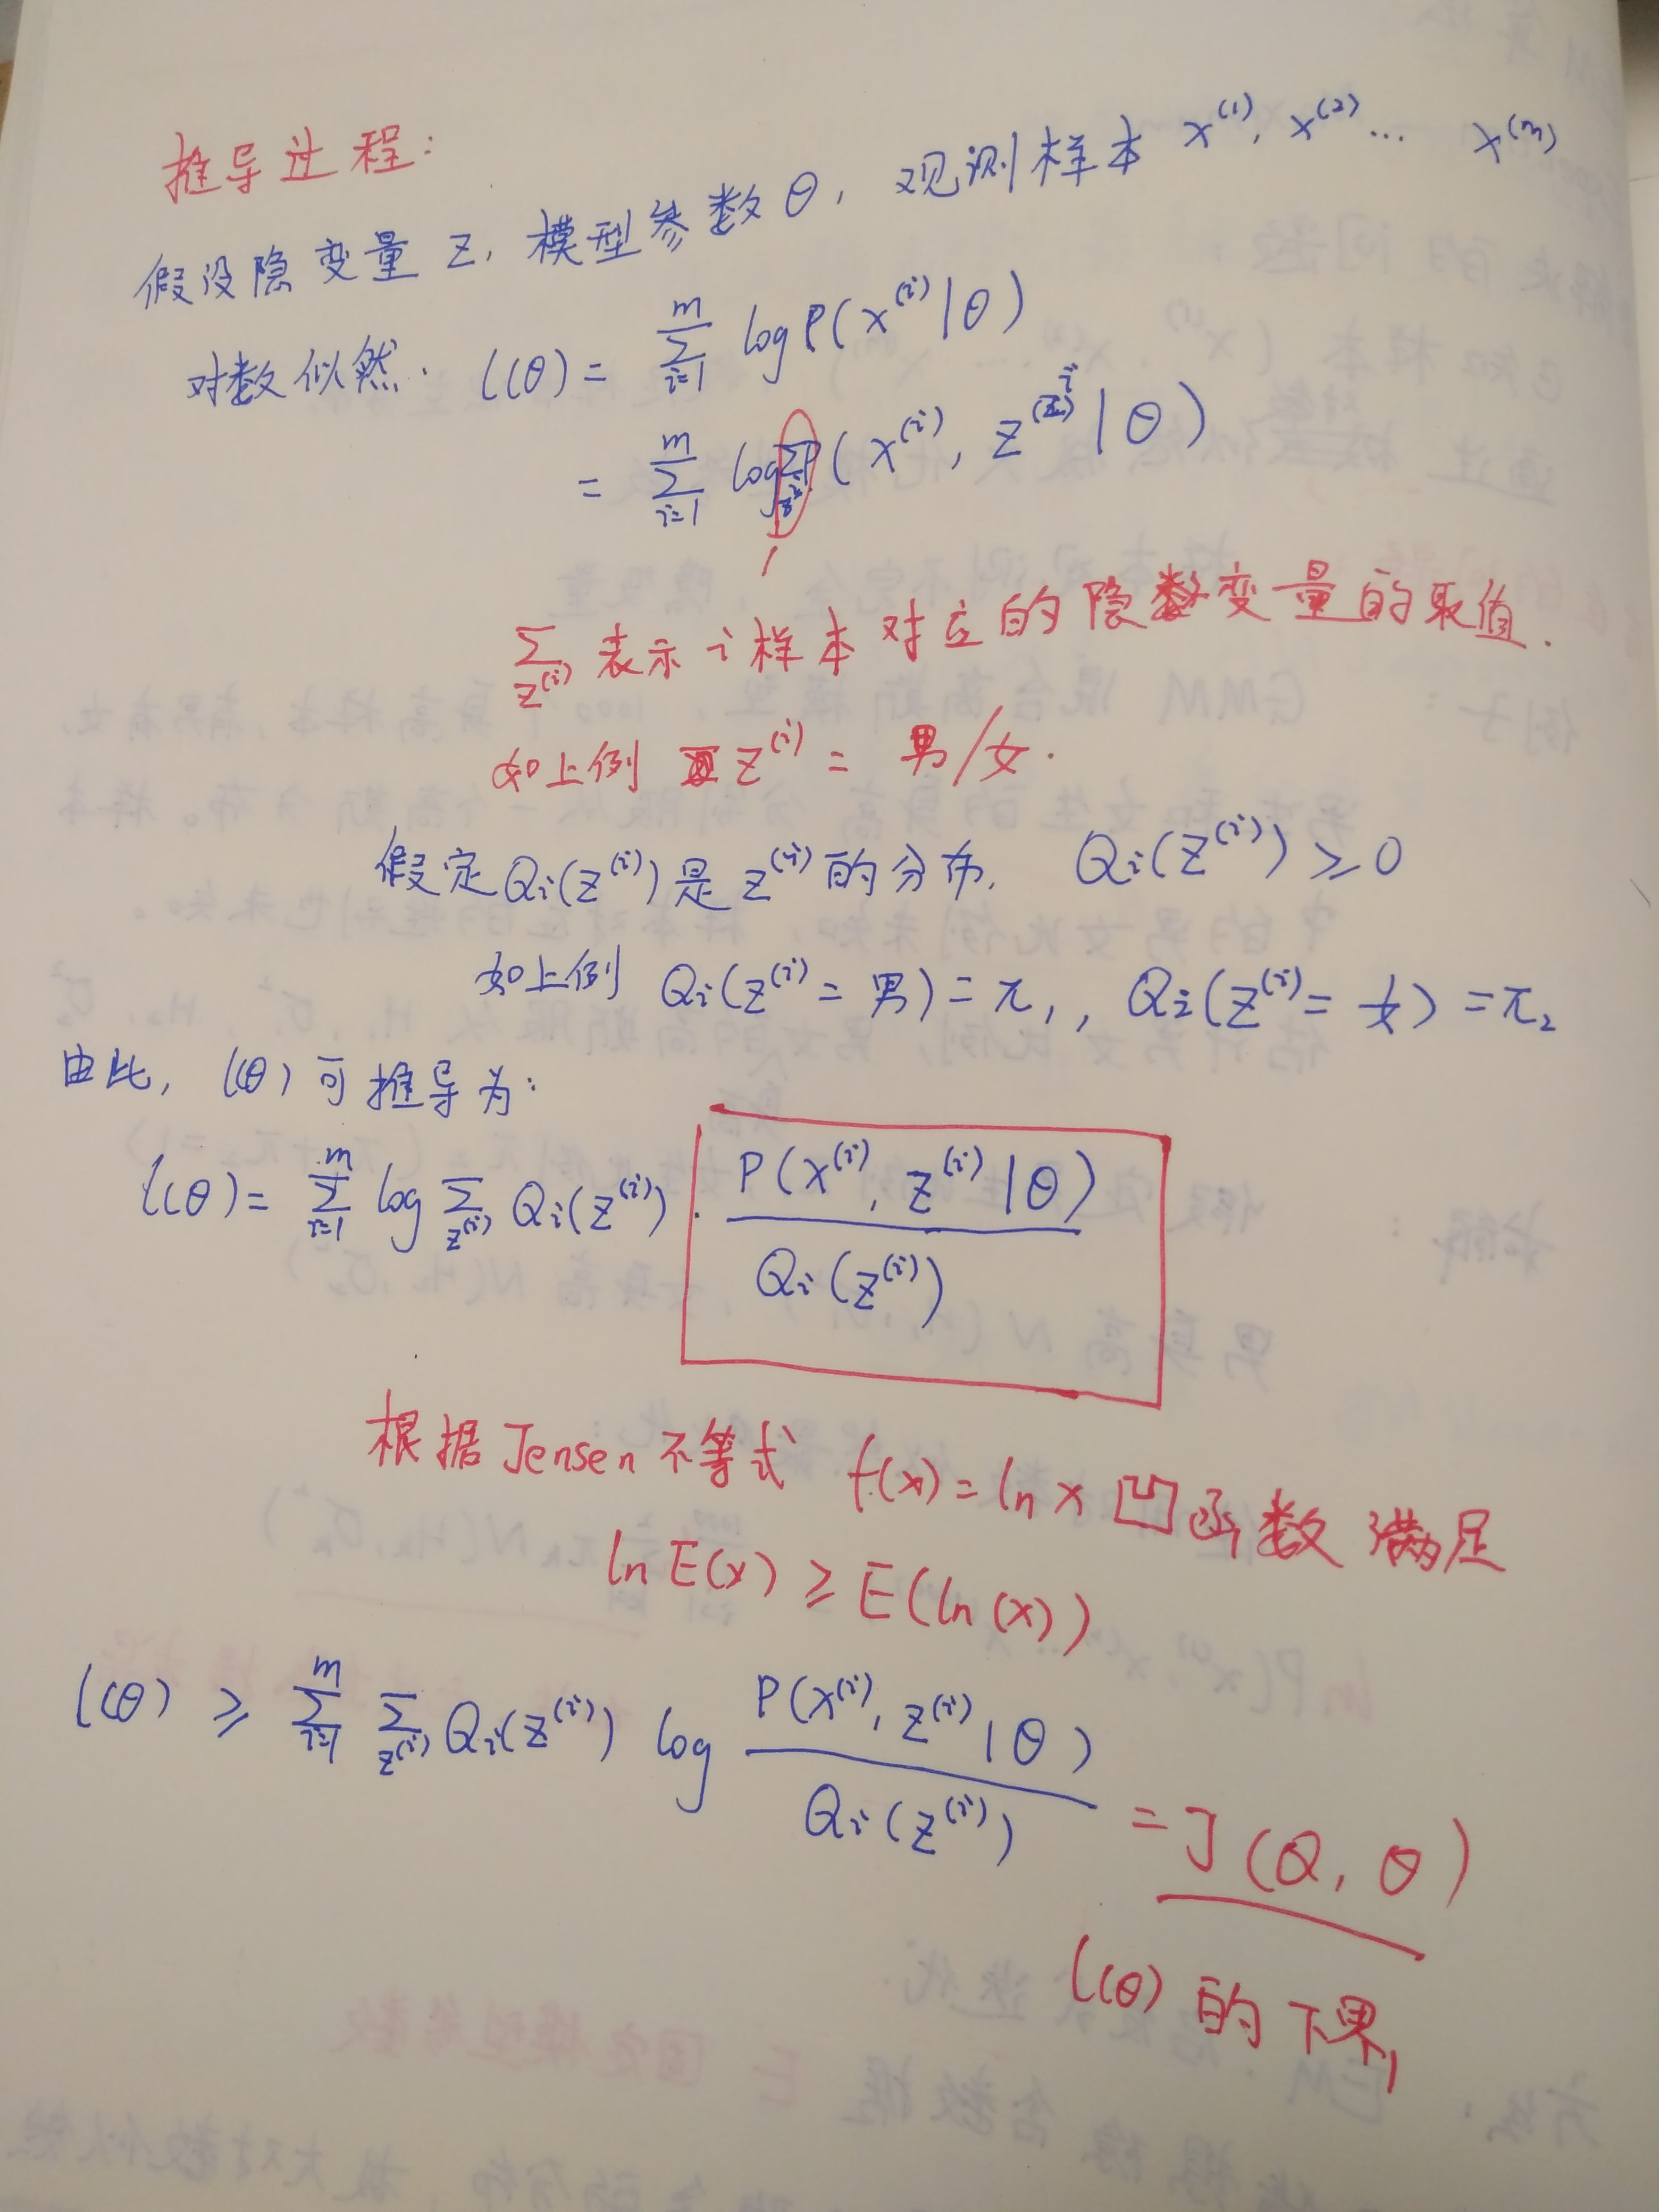 推导过程:
假设隐变量 z, 模型参数 θ, 观测样本 x^(1), x^(2) ... x^(m)
对数似然. l(θ) = Σ_{i=1}^{m} log P(x^(i) | θ)
= Σ_{i=1}^{m} log Σ_{z^(i)} P(x^(i), z^(i) | θ)
Σ_{z^(i)} 表示 i 样本对应的隐变量的取值.
如上例 z^(i) = 男/女.
假定 Q_i(z^(i)) 是 z^(i) 的分布, Q_i(z^(i)) ≥ 0
如上例 Q_i(z^(i) = 男) = π_1, Q_i(z^(i) = 女) = π_2
由此, l(θ) 可推导为:
l(θ) = Σ_{i=1}^{m} log Σ_{z^(i)} Q_i(z^(i)) · P(x^(i), z^(i) | θ) / Q_i(z^(i))
根据 Jensen 不等式 f(x) = ln x 凹函数 满足
ln E(x) ≥ E(ln(x))
l(θ) ≥ Σ_{i=1}^{m} Σ_{z^(i)} Q_i(z^(i)) log P(x^(i), z^(i) | θ) / Q_i(z^(i)) = J(Q, θ)
l(θ) 的下界,